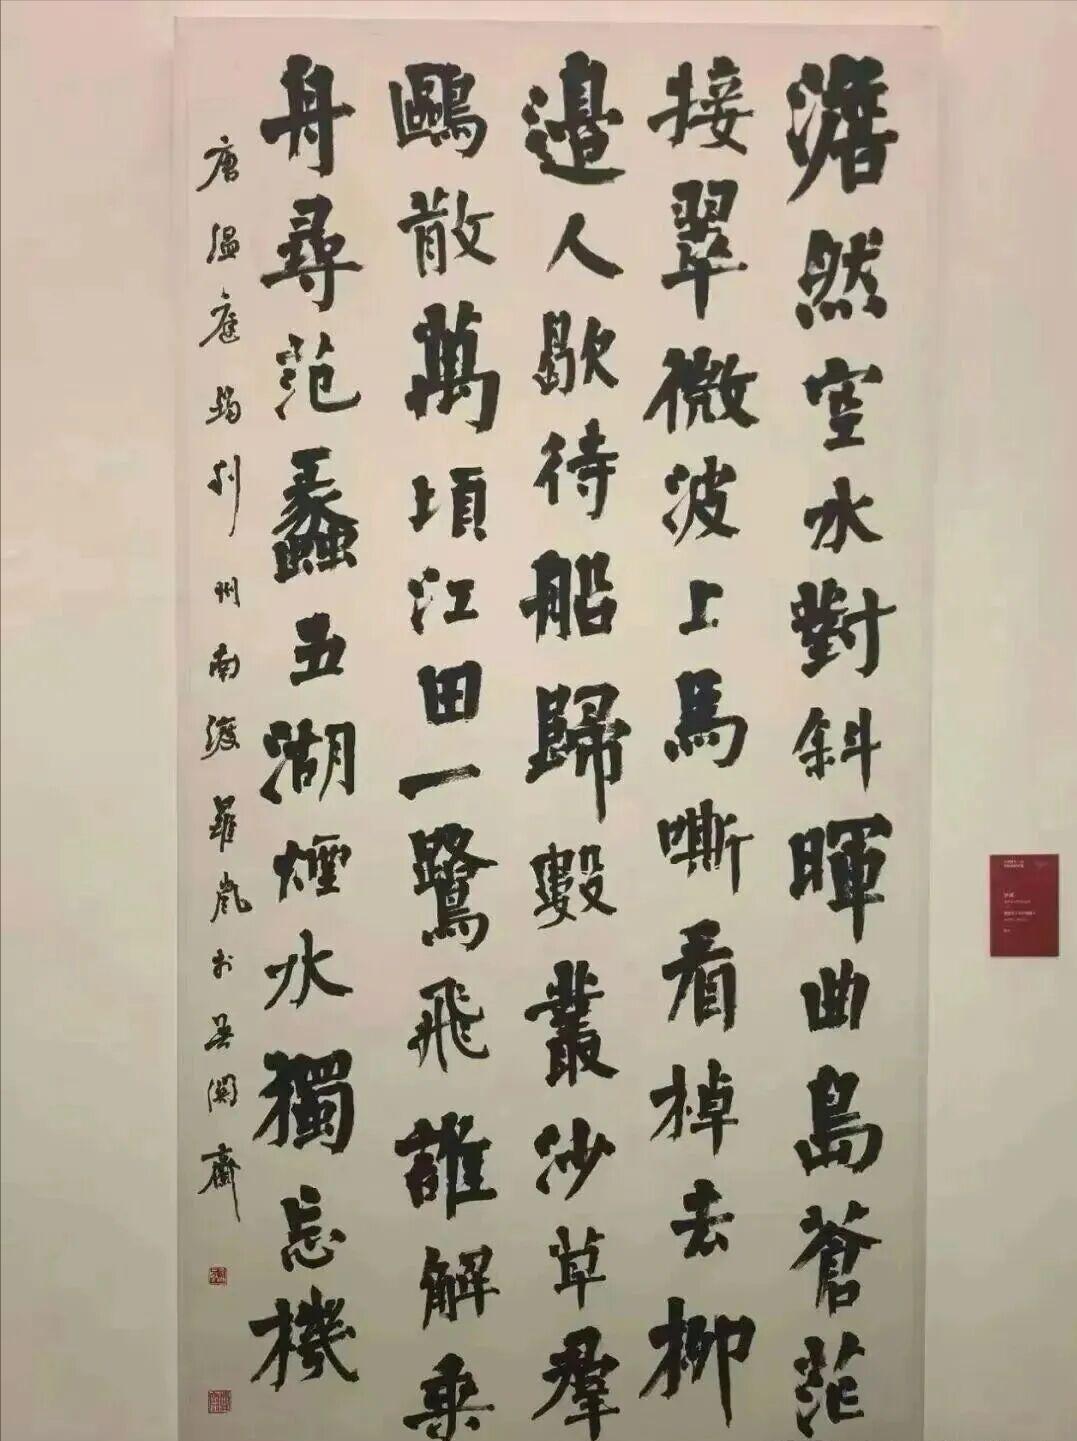 澹然空水對斜暉曲島蒼茫
接翠微波上馬嘶看棹去柳
邊人歇待船歸數叢沙草羣
鷗散萬頃江田一鷺飛誰解乘
舟尋范蠡五湖煙水獨忘機
唐溫庭筠利州南渡 羅嵐於吳門齋